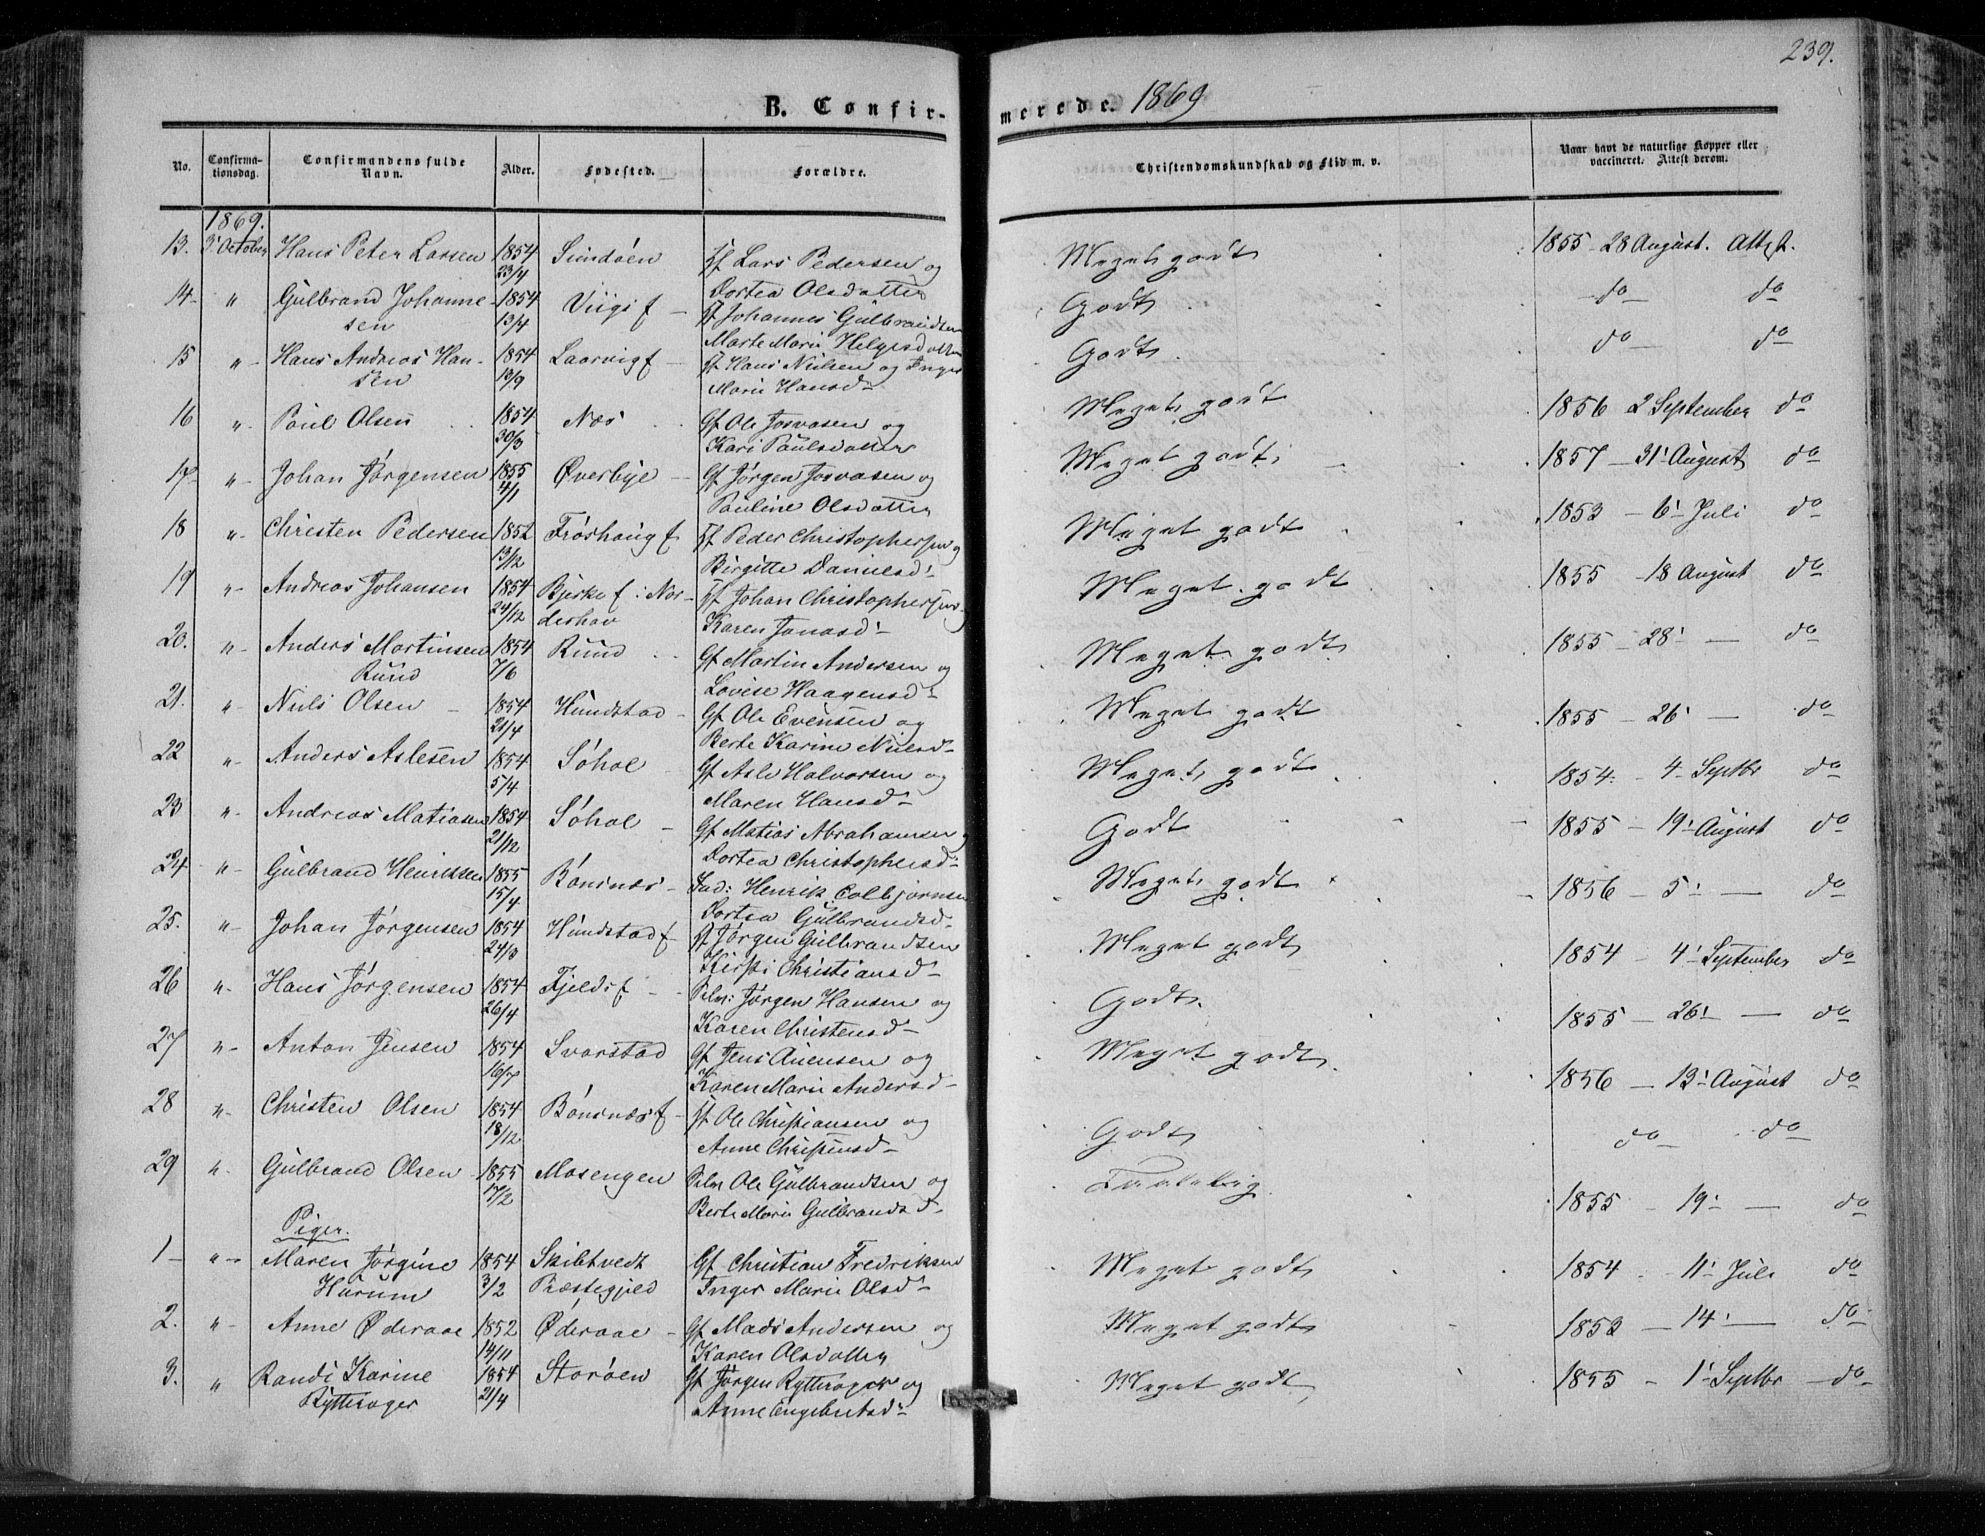 239.
B. Confir-
merede. 1869
No. Confirma-tionsdag. Confirmandens fulde Navn. Alder. Fødested. Forældre. Christendomskundskab og Flid m. v. Naar havt de naturlige Kopper eller vaccineret. Attest derom.
1869.
13. 3' October Hans Peter Larsen 1854 23/4 Sundøen Lars Pedersen og Dortea Olsdatter Meget godt 1855 28 August. Attest.
14 " Gulbrand Johannesen 1854 13/4 Johannes Gulbrandsen Marte Marie Helgesdatter Godt do do
15 " Hans Andreas Hansen 1854 13/9 Laarvig Hans Nielsen og Inger Marie Hansd- Godt do do
16 " Poul Olsen 1854 30/3 Næs Gf Ole Josvasen og Kari Poulsdatter Meget godt 1856 2 September do
17 " Johan Jørgensen 1855 4/1 Øverbye Gf Jørgen Josvasen og Pauline Olsdatter Meget godt 1857 - 31' August do
18 " Christen Pedersen 1852 13/12 Frøshaug Peder Christophersen og Birgitte Danielsd- Meget godt 1853 - 6' Juli do
19 " Andreas Johansen 1854 24/12 Bjerke f i Norderhov Johan Christophersen og Karen Jonasd- Meget godt 1855 - 18 August do
20. " Anders Martinsen Ruud 1854 7/6 Ruud Gf Martin Andersen og Lovise Haagensd- Meget godt 1855 - 28' - do
21. " Niels Olsen 1854 21/4 Hundstad Gf Ole Evensen og Berte Karine Nielsd- Meget godt 1855 - 26' - do
22 " Anders Aslesen 1854 5/4 Søhol Gf Asle Halvorsen og Maren Hansd- Meget godt 1854 - 4 Septbr do
23 " Andreas Matiasen 1854 21/12 Søhol Gf Matias Abrahamsen og Dortea Christophersd- Godt 1855 - 19' August do
24 " Gulbrand Henriksen 1855 15/4 Bønsnæs Ind: Henrik Colbjørnsen Dortea Gulbrandsd- Meget godt 1856 - 5' - do
25. " Johan Jørgensen 1854 24/3 Hundstad f Jørgen Gulbrandsen Kirsti Christiansd- Meget godt 1854 - 4' September do
26 " Hans Jørgensen 1854 26/4 Fjelds f Jørgen Hansen og Karen Christensd- Godt 1855 - 26' - do
27 " Anton Jensen 1854 Svarstad Gf Jens Auensen og Karen Marie Andersd- Meget godt 1856 - 13' August do
28 " Christen Olsen 1854 18/12 Bønsnæs f Ole Christiansen og Anne Christensd- Godt do do
29 " Gulbrand Olsen 1855 17/2 Mosengen Ole Gulbrandsen og Berte Marie Gulbrandsd- Taalelig 1855 - 19' - do
Piger.
1 " Maren Jørgine Hurum 1854 3/2 Skibtvedt Præstegjeld Gf Christian Fredriksen Inger Marie Olsd- Meget godt 1854 - 11' Juli do
2. " Anne Øderaae 1852 14/11 Øderaae Gf Mads Andersen og Karen Olsdatter Meget godt 1853 - 14' - do
3. " Randi Karine Rytterager 1854 21/4 Storøen Gf Jørgen Rytterager og Anne Engebretsd- Meget godt 1855 - 1' Septbr - do